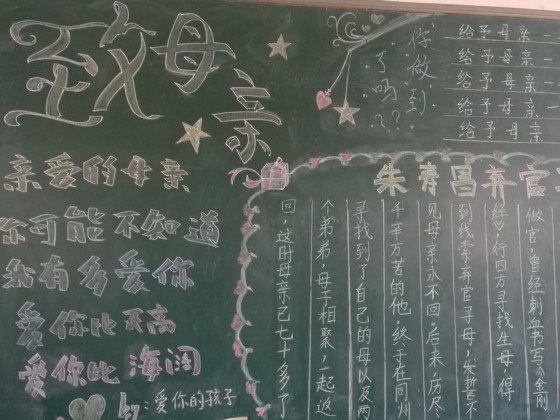 致母亲
亲爱的母亲
你可能不知道
我有多爱你
爱你比天高
爱你比海阔
by:爱你的孩子
你做到
了吗??
给予母亲一
给予母亲一
给予母亲
给予母亲
给予母亲
朱寿昌弃官
做官,曾经刺血书写《金刚
经》,行四方寻找生母,得
到线索弃官寻母,发誓不
见母亲永不回。后来,历尽
千辛万苦的他,终于在同州
寻找到了自己的母以及两
个弟弟,母子相聚,一起返
回,这时母亲已七十多了